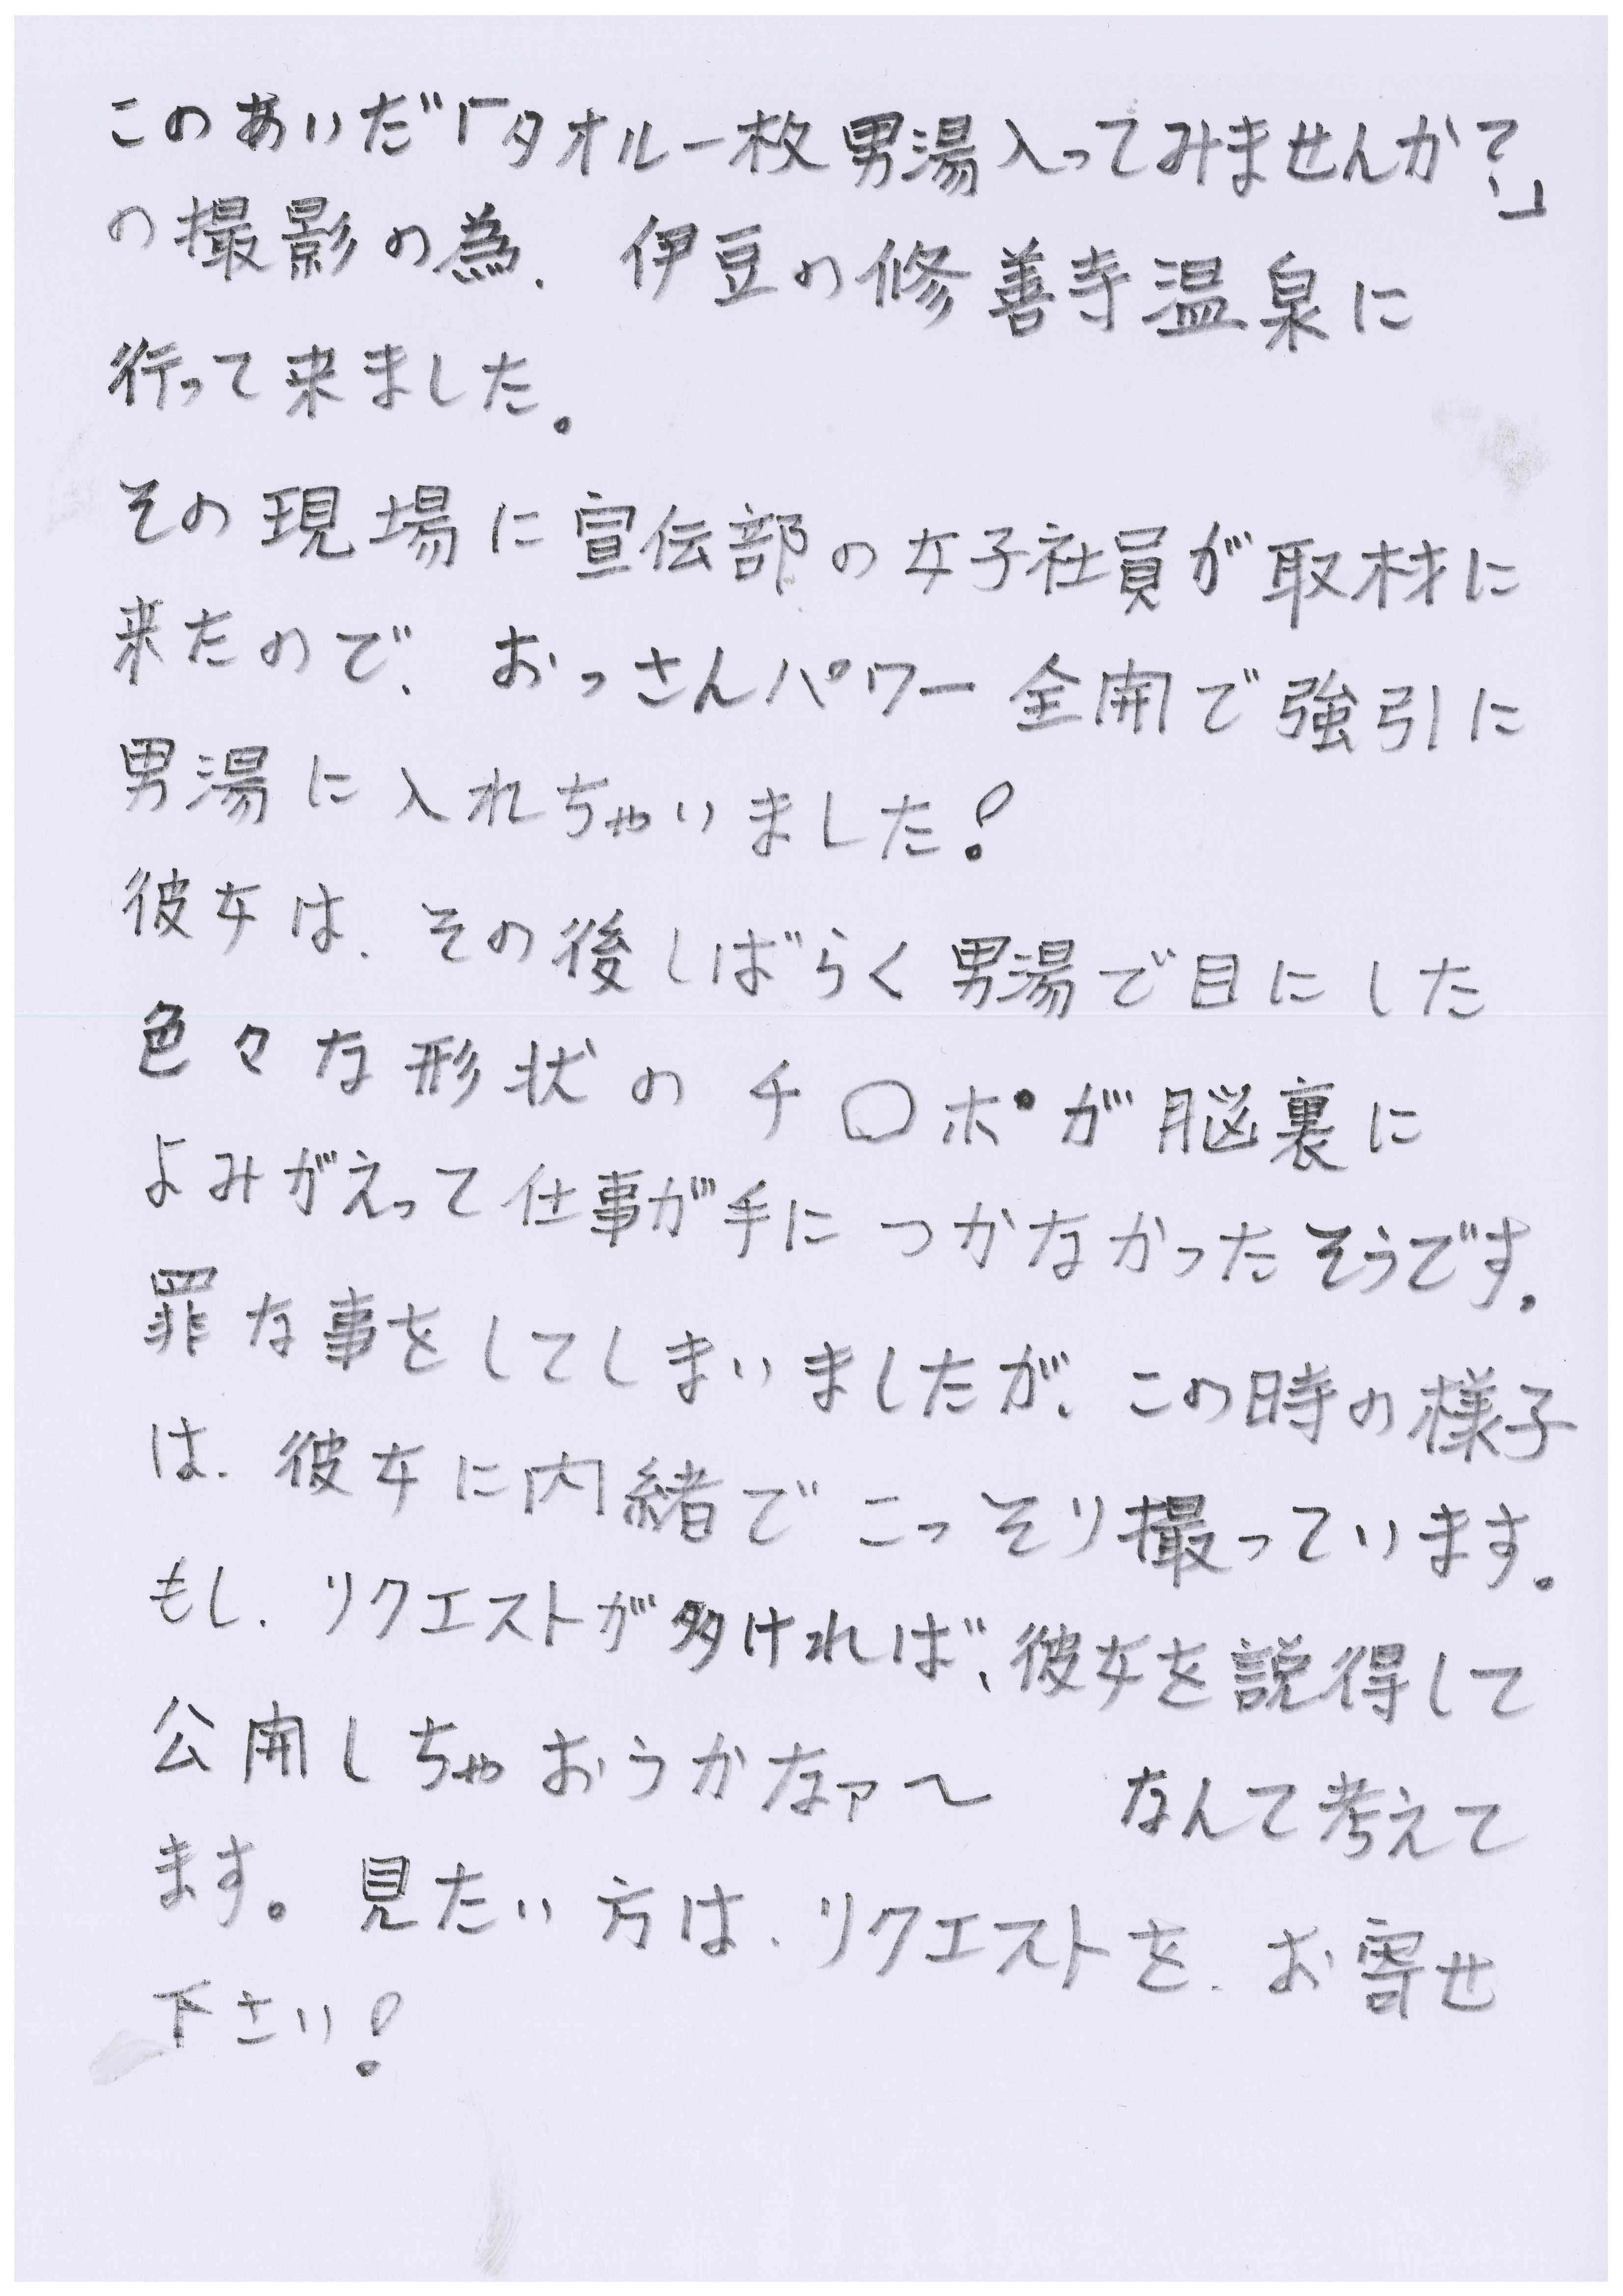 このあいだ「タオル一枚男湯入ってみませんか?」
の撮影の為、伊豆の修善寺温泉に
行って来ました。
その現場に宣伝部の女子社員が取材に
来たので、おっさんパワー全開で強引に
男湯に入れちゃいました!
彼女は、その後しばらく男湯で目にした
色々な形状のチ〇ポが脳裏に
よみがえって仕事が手につかなかったそうです。
罪な事をしてしまいましたが、この時の様子
は、彼女に内緒でこっそり撮っています。
もし、リクエストが多ければ、彼女を説得して
公開しちゃおうかなァ〜 なんて考えて
ます。見たい方は、リクエストを、お寄せ
下さい!